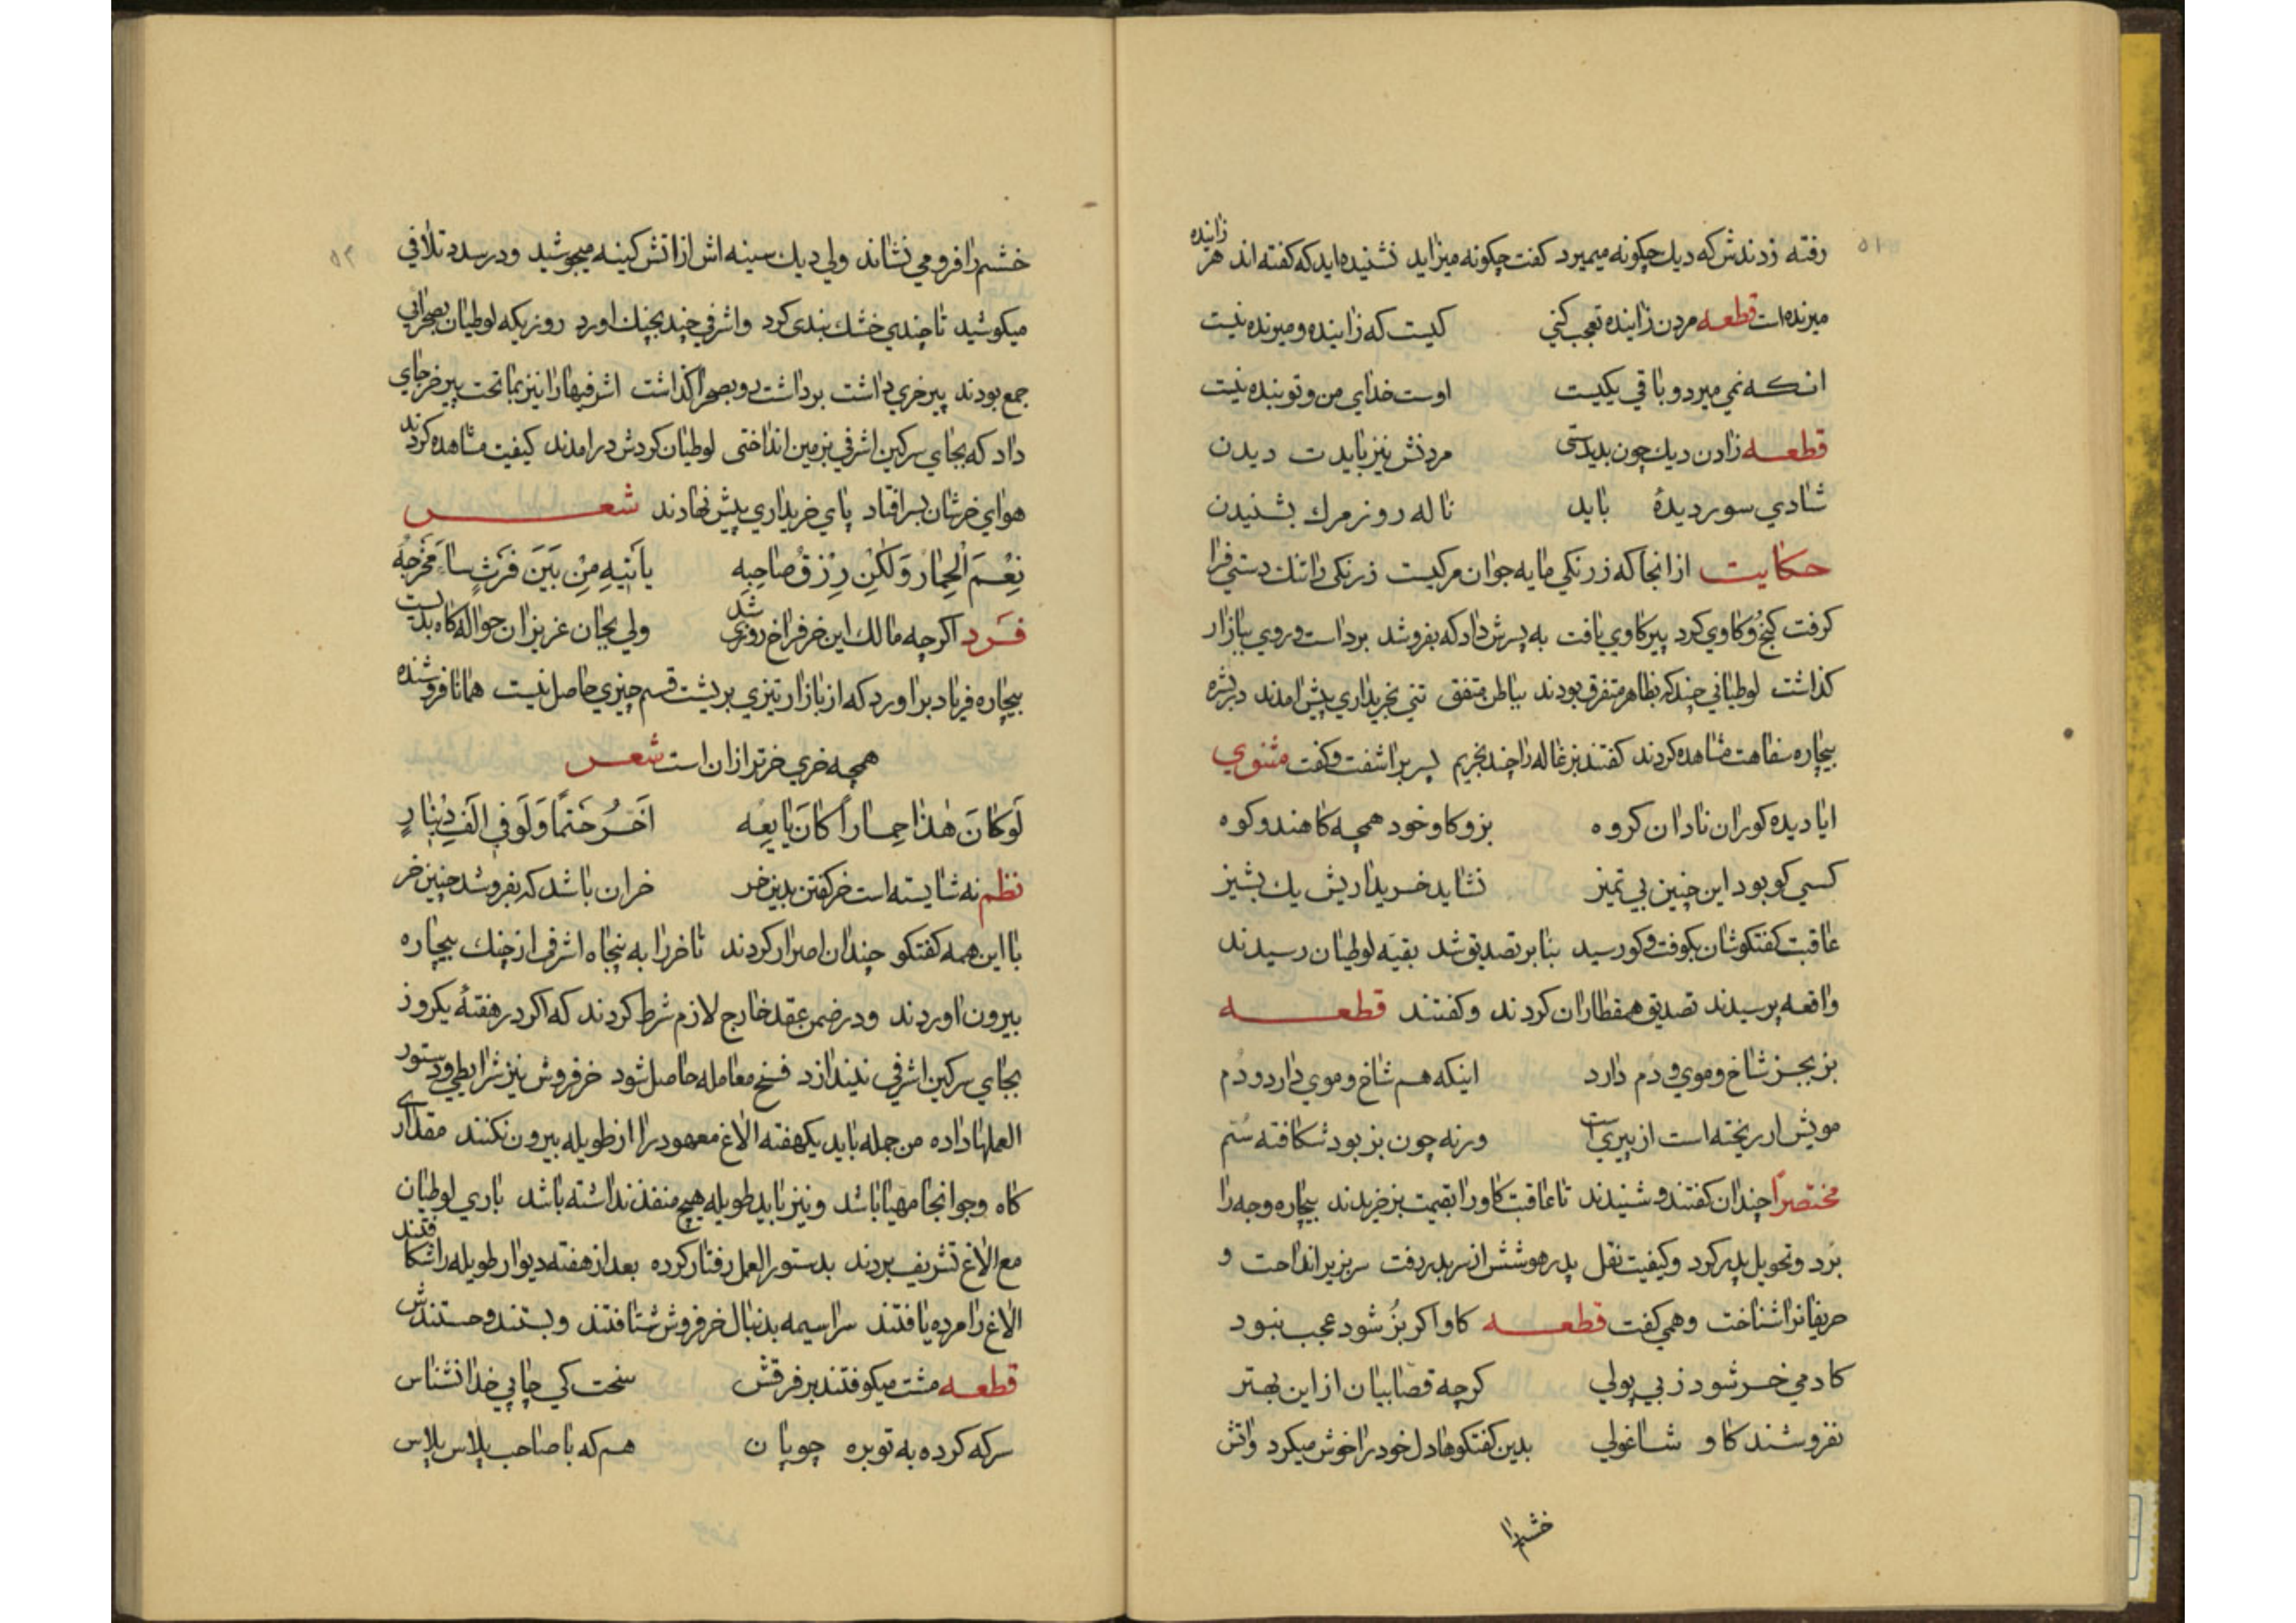 ۵۱
رفته زدندش که دیك چکونه میمیرد کفت چکونه میزاید نشنیده‌اید که کفته اند هر زاینده
میرنده است قطعه مردن زاینده تعجب کنی کیست که زاینده و میرنده نیست
انکه نمی میرد و باقی یکیست اوست خدای من و تو بنده نیست
قطعه زادن دیك چون بدیدستی مردنش نیز بایدت دیدن
شادی سور دیدهٔ باید ناله روز مرك بشنیدن
حکایت از انجا که زرنکی مایه جوان مرکیست زرنکی را تنك دستی فرا
کرفت کنج و کاوی کرد پیر کاوی یافت به پسرش داد که بفروشد برداست و روی ببازار
کذاشت لوطیانی چند که بظاهر متفرق بودند بباطن متفق تنی بخریداری پیش امدند در بشره
بیچاره سفاهت مشاهده کردند کفتند بزغاله را چند بخریم پسر براشفت و کفت مثنوی
ایا دیده کوران نادان کروه بز و کاو خود همچه کاهند و کوه
کسی کو بود این چنین بی تمیز نشاید خریداریش یك بشیز
عاقبت کفتکوشان بکوفت و کو رسید بنا بر تصدیق شد بقیه لوطیان رسیدند
واقعه پرسیدند تصدیق همقطاران کردند و کفتند قطعه
بز بجز شاخ و موی و دم دارد اینکه هم شاخ و موی دارد و دُم
مویش ار ریخته است از پیری است ورنه چون بز بود شکافته سُم
مختصراً چندان کفتند و شنیدند تا عاقبت کاو را بقیمت بز خریدند بیچاره وجه را
بَرد و تحویل پدر کرد و کیفیت نقل پدر هوشش از سر بدر رفت سر بزیر انداحت و
حریفانرا شناخت و همی کفت قطعه کاو اکر بُز شود عجب نبود
کادمی خر شود ز بی پولی کرچه قصابیان از این بهتر
نفروشند کاو شاغولی بدین کفتکوها دل خود را خوش میکرد واتش
خشم را
۵۲
خشم را فرو می نشاند ولی دیك سینه اش از اتش کینه میجوشید و در صدد تلافی
میکوشید تا چندی خشك بندی کرد و اشرفی چند بچنك اورد روزیکه لوطیان بصحرائی
جمع بودند پیر خری داشت برداشت رو بصحرا کذاشت اشرفیها را نیز بماتحت پیر خر جای
داد که بجای سرکین اشرفی بزمین انداختی لوطیان کردش در امدند کیفیت مشاهده کردند
هوای خرشان بسر افتاد پای خریداری پیش نهادند شعر
نِعْمَ الْحِمَارُ وَلٰکِنْ رِزْقُ صَاحِبِه یَاتیهِ مِنْ بَیْنَ فَرْثٍ سَاءَ مَخْرَجُه
فرد اکرچه مالك این خر فراخ روزی شد ولی بجان عزیزان حواله کاه بدیست
بیچاره فریاد براورد که از بازار تیزی بریشت قسم چیزی حاصل نیست همانا فروشنده
همچه خری خرتر از ان است شعر
لَوکَانَ هٰذا حِماراً کانَ بایِعُه اَخَسرُ حَتماً وَلَو فی اَلفِ دینارٍ
نظم نه شایسته است خر کفتن بدین خر خر ان باشد که بفروشد چنین خر
با این همه کفتکو چندان اصرار کردند تا خر را به پنجاه اشرفی از چنك بیچاره
بیرون اوردند و در ضمن عقد خارج لازم شرط کردند که اکر در هفتهٔ یکروز
بجای سرکین اشرفی نیندازد فسخ معامله حاصل شود خر فروش نیز شرایطی و دستور
العملها داده من جمله باید یکهفته الاغ معهود را از طویله بیرون نکنند مقداری
کاه و جو انجا مهیا باشد و نیز باید طویله هیچ منفذ نداشته باشد باری لوطیان
مع الاغ تشریف بردند بدستور العمل رفتار کرده بعد از هفته دیوار طویله را شکافتند
الاغ را مرده یافتند سراسیمه بدنبال خر فروش شتافتند و بستند و خستندش
قطعه مشت میکوفتند بر فرقش سخت کی چاپی خدا نشناس
سرکه کرده به توبره چوپان هم که با صاحب پلاس پلاس